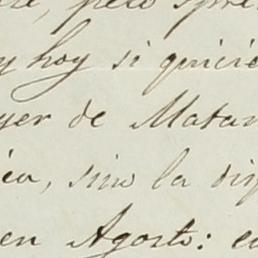 pero
y hoy si quisie
yer de Matan
sino la dis
en Agosto: